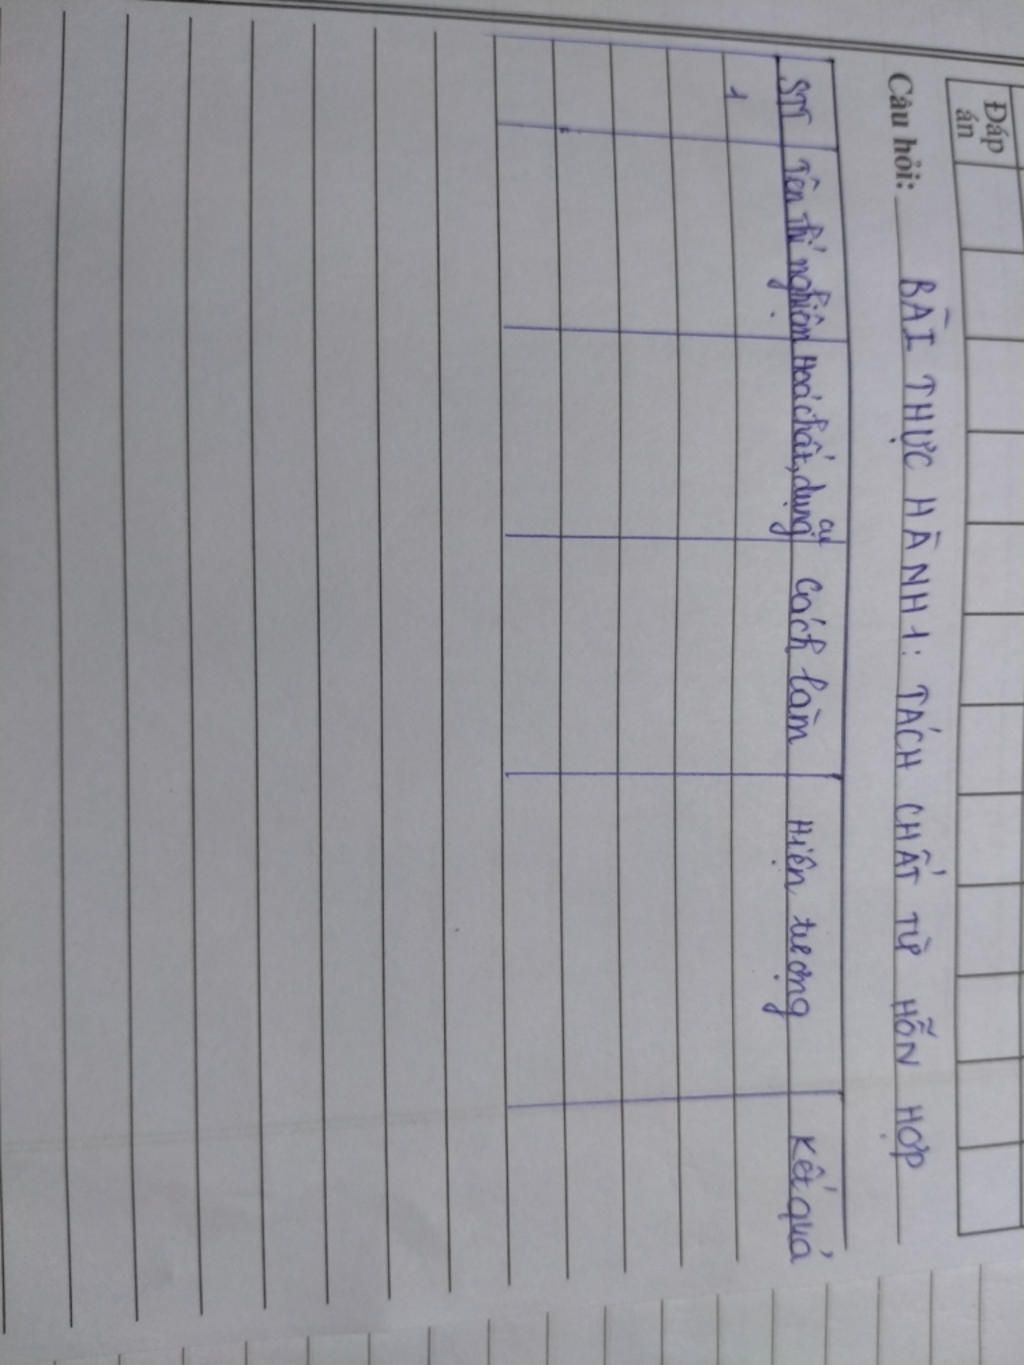 Đáp án
Câu hỏi: BÀI THỰC HÀNH 1: TÁCH CHẤT TỪ HỖN HỢP
STT Tên thí nghiệm Hoá chất, dụng cụ Cách làm Hiện tượng Kết quả
1